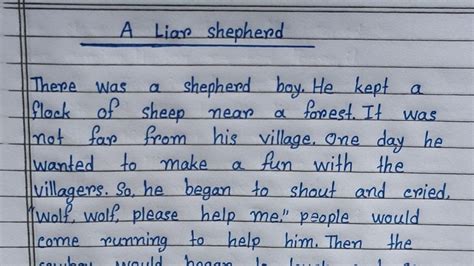 A Liar shepherd
There was a shepherd boy. He kept a
flock of sheep near a forest. It was
not far from his village. One day he
wanted to make a fun with the
villagers. So, he began to shout and cried,
"Wolf, wolf, please help me." people would
come running to help him. Then the
would